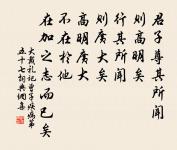 君子尊其所聞
則高明矣
行其所聞
則廣大矣
高明廣大
不在於他
在加之志而已矣
大戴禮記曾子疾病第
五十七詞典網集